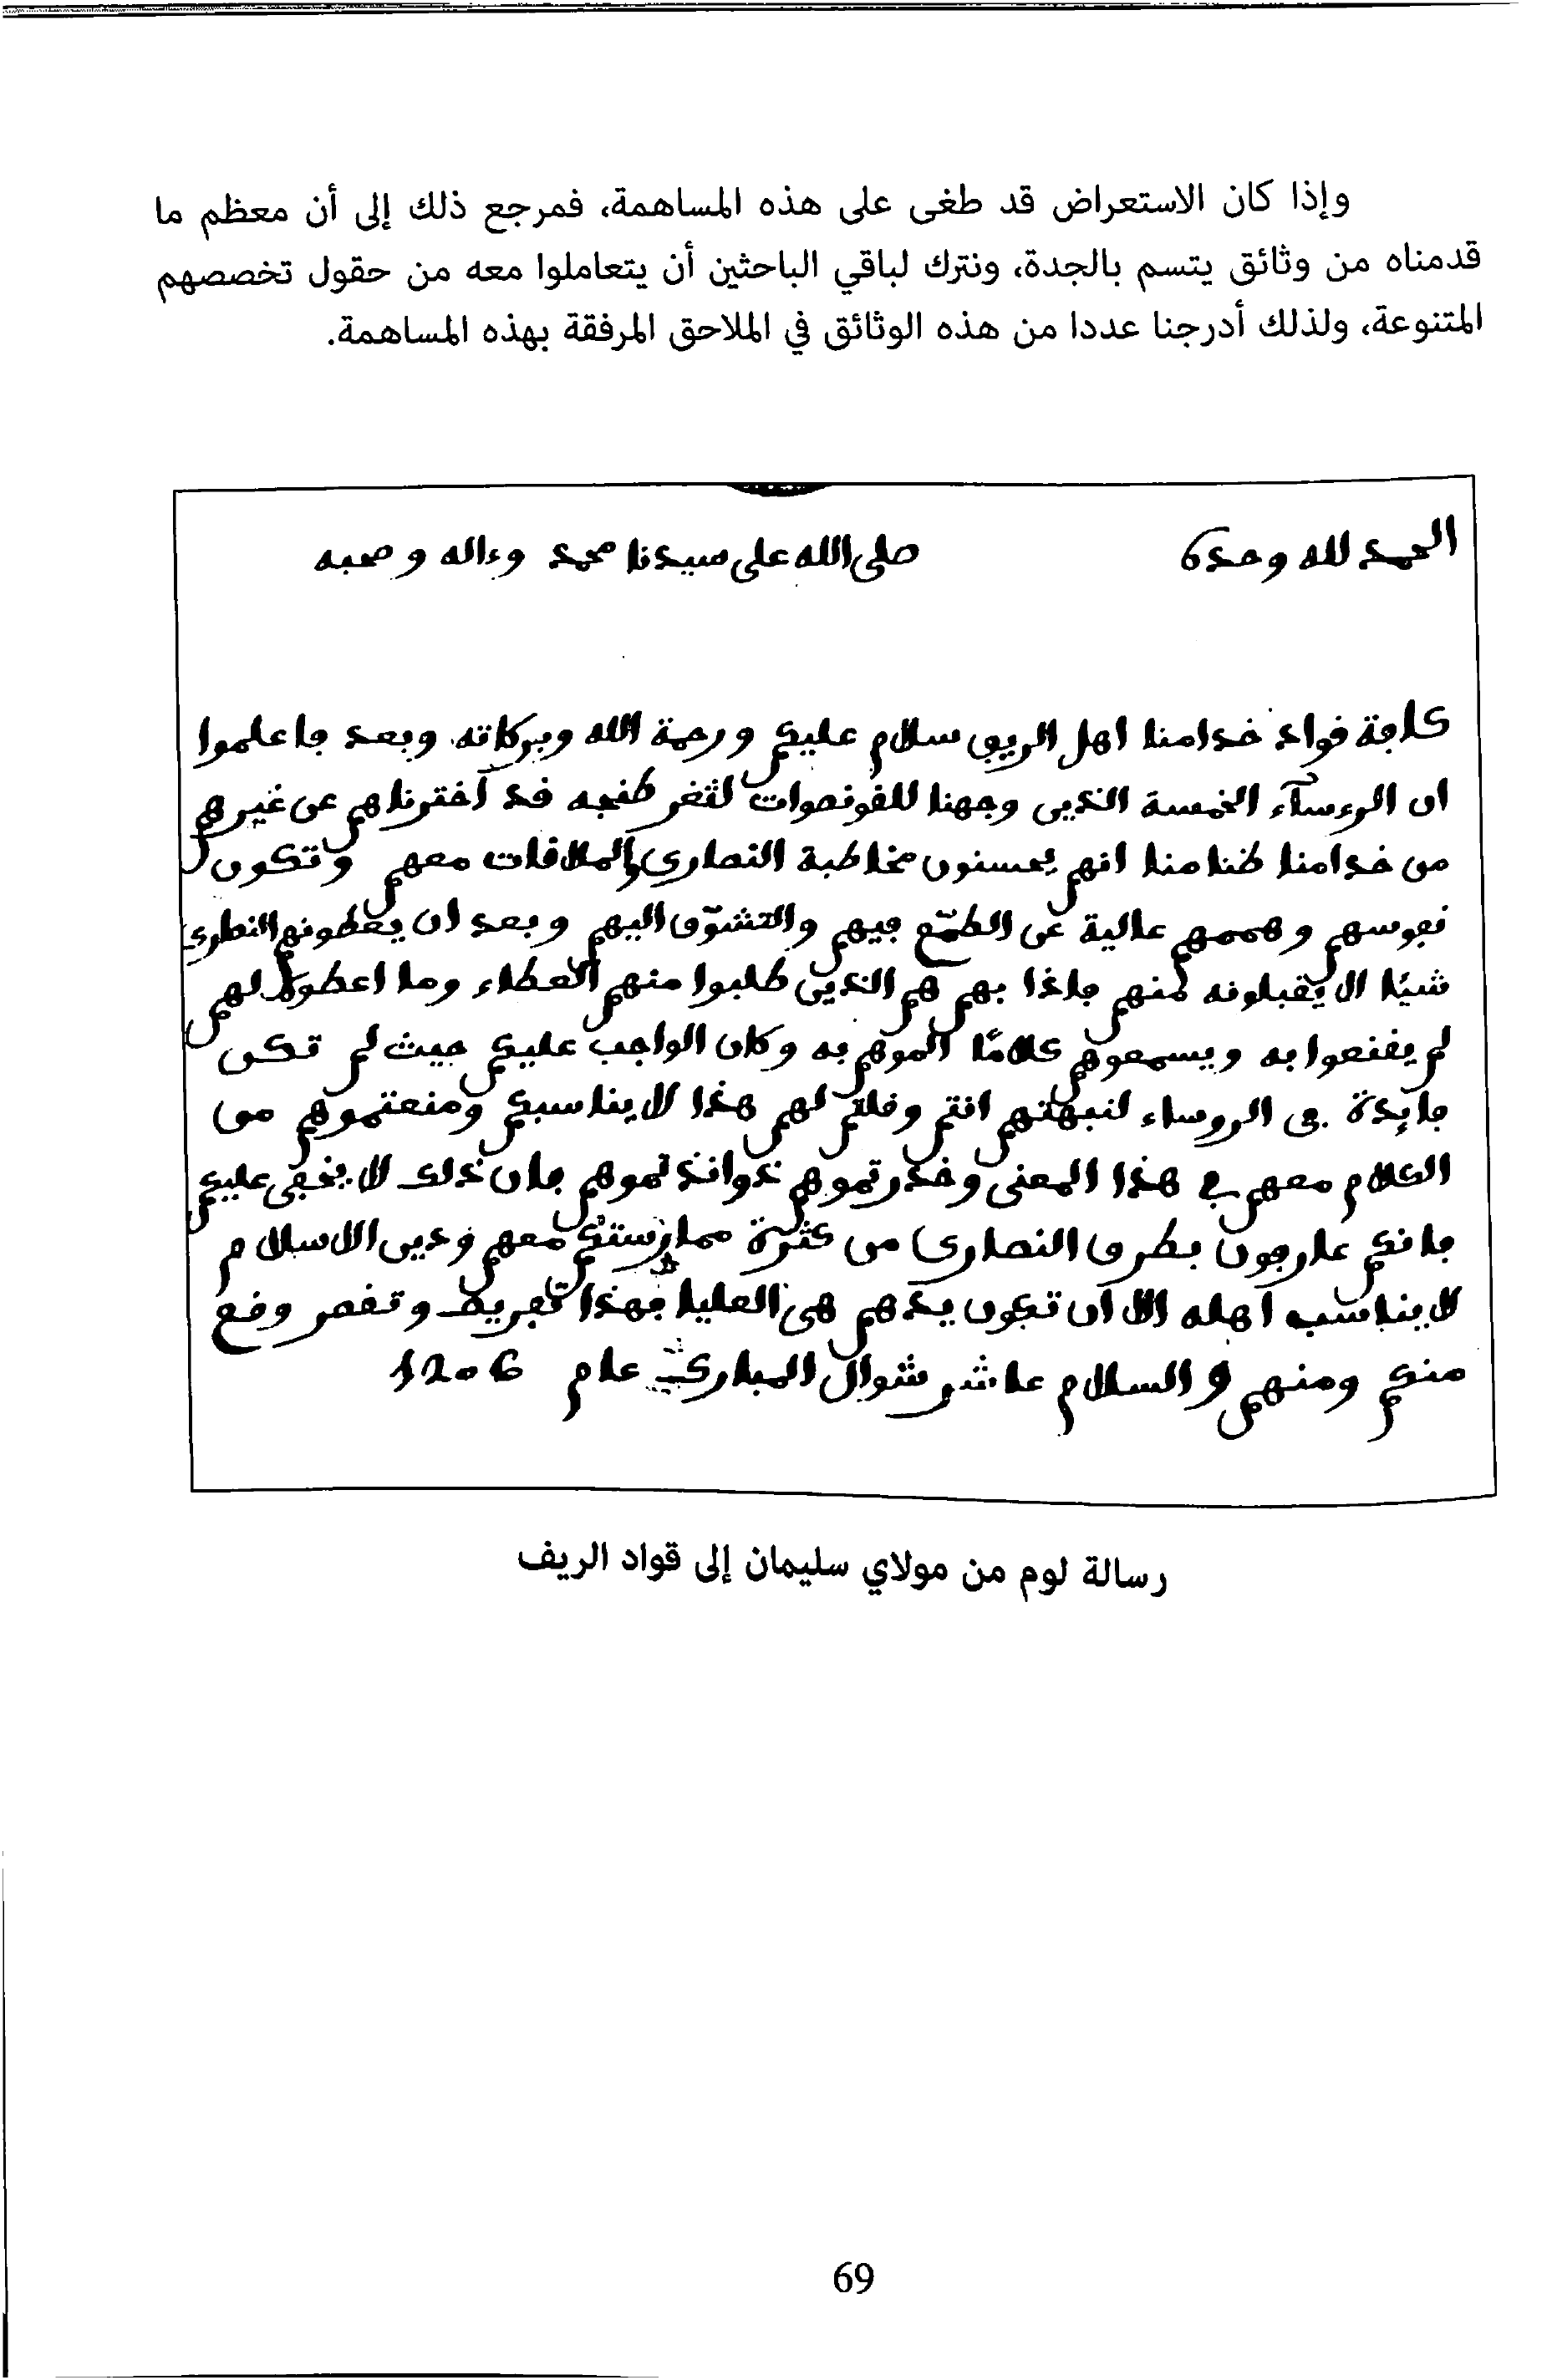 وإذا كان الاستعراض قد طغى على هذه المساهمة، فمرجع ذلك إلى أن معظم ما
قدمناه من وثائق يتسم بالجدة، ونترك لباقي الباحثين أن يتعاملوا معه من حقول تخصصهم
المتنوعة، ولذلك أدرجنا عددا من هذه الوثائق في الملاحق المرفقة بهذه المساهمة.
الحمد لله وحده صلى الله على سيدنا محمد وءاله وصحبه
كافة قواد خدامنا اهل الريف سلام عليكم ورحمة الله وبركاته وبعد فاعلموا
ان الرءساء الخمسة الذين وجهنا للقونصوات لثغر طنجه قد اخترناهم عن غيرهم
من خدامنا ظنا منا انهم يحسنون مخاطبة النصارى والملاقات معهم وتكون
نفوسهم وهممهم عالية عن الطمع فيهم والتشوّف اليهم وبعد ان يعطونهم النصارى
شيئا لا يقبلونه منهم فاذا بهم هم الذين طلبوا منهم العطاء وما اعطوا لهم
لم يقنعوا به ويسمعوهم كلامًا الموهم به وكان الواجب عليكم حيث لم تكن
فايدة في الروساء لنبهتهم انتم وقلتم لهم هذا لا يناسبكم ومنعتموهم من
الكلام معهم في هذا المعنى وحذرتموهم وانذرتموهم فان ذلك لا يخفى عليكم
فانكم عارفون بطرق النصارى من كثرة ممارستكم معهم ودين الاسلام
لا يناسب اهله الا ان تكون يدهم هي العليا فهذا تفريط وتقصر وقع
منكم ومنهم والسلام عاشر شوال المبارك عام 1206
رسالة لوم من مولاي سليمان إلى قواد الريف
69